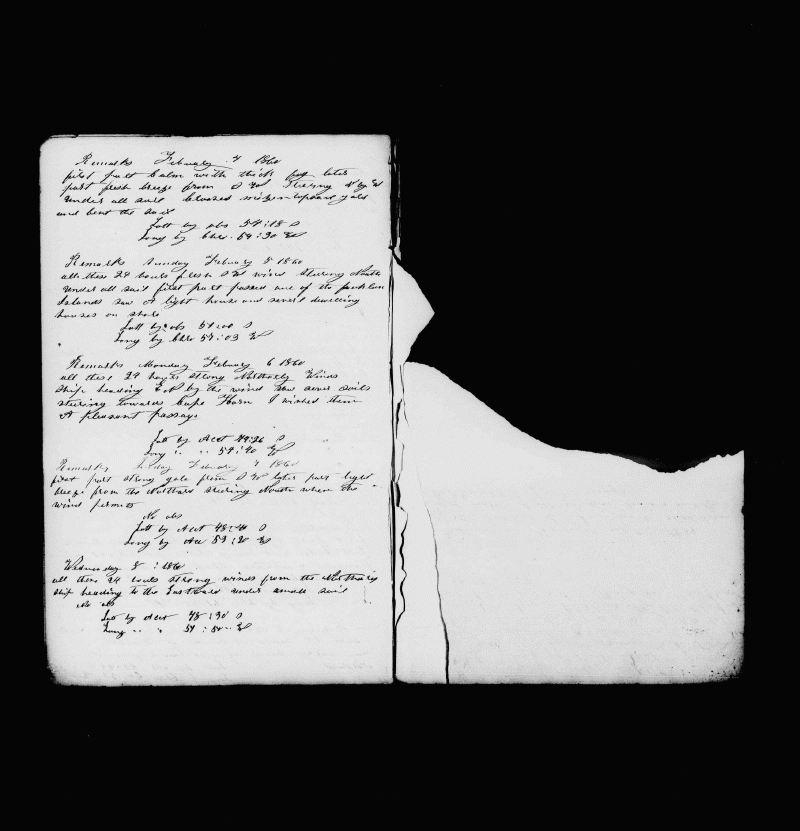 Remarks February 4 1860
first part Calm with thick fog later
part fresh breeze from S W Steering N by W
under all sail crossed mizentopsail yard
and bent the sail
Latt by obs 54:18 S
Long by Chro. 59:30 W
Remarks Sunday February 5 1860
all these 24 hours fresh S W wind steering North
under all sail first part passed one of the
Islands saw a light house and severl dwelling
houses on shore
Latt by obs 51:00 S
Long by Chro 57:03 W
Remarks Monday Febuary 6 1860
all these 24 hours strong Northerly Winds
Ship heading E N by the wind saw sails
steering towards Cape Horn I wished them
A pleasant passage
Latt by Acct 49:26 S
Long " " 54:40 W
Remarks February 7 1860
first part strong gale from S W later part light
breeze from the Northard steering North when the
wind permits
No obs
Latt by Acct 48:40 S
Long by Acc 53:20 W
Wednesday 8 : 1860
all these 24 hours strong winds from the
Ship heading to the Eastward under small sail
No obs
Latt by Acct 48:30 S
Long " " 51:50 W